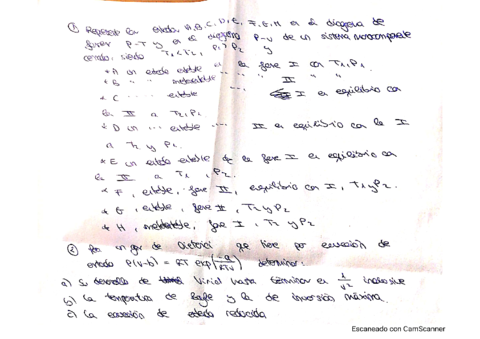 ① Represente los estados A, B, C, D, E, F, G, H en el diagrama de
fases P-T y en el diagrama P-v de un sistema monocomponente
cerrado, siendo T1<T2, P1>P2 y
* A un estado estable en la fase I con T1, P1.
* B " " metaestable " " " II " "
* C ... estable ... I en equilibrio con
la II a T2, P1
* D un ... estable ... II en equilibrio con la I
a T2 y P1.
* E un estado estable de la fase I en equilibrio con
la II a T1, P2.
* F, estable, fase II, equilibrio con I, T1 y P2.
* G, estable, fase II, T2 y P2
* H, metaestable, fase I, T2 y P2
② Para un gas de Dieterici que tiene por ecuación de
estado P(v-b) = RT exp(-a/RTv) determinar:
a) Su desarrollo de virial hasta términos en 1/v² inclusive
b) La temperatura de Boyle y la de inversión máxima.
c) La ecuación de estado reducida
Escaneado con CamScanner